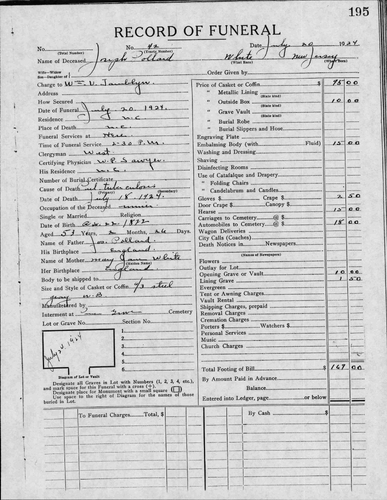 195
RECORD OF FUNERAL
No. No. 42 Date, July 20 1924
(Total Number) (Yearly Number)
Name of Deceased Joseph Pollard White New Jersey
(What Race) (Where Born)
Charge to Wm V. Tamblyn Order Given by
Address Price of Casket or Coffin $ 75 00
" Metallic Lining
(State Kind)
How Secured " Outside Box 10 00
(State Kind)
Date of Funeral July 20. 1924. " Grave Vault
(State Kind)
Residence N.C. " Burial Robe
Place of Death N.C. " Burial Slippers and Hose
Funeral Services at Here Embalming Body (with Fluid) 15 00
Time of Funeral Service 2:30 P.M. Washing and Dressing
Clergyman West Shaving
Certifying Physician W.P. Sawyer Disinfecting Rooms
His Residence N.C. Use of Catafalque and Drapery
Number of Burial Certificate " Folding Chairs
Cause of Death tuberculosis " Candelabrum and Candles
(Primary) (Secondary)
Date of Death July 18. 1924. Gloves $ Crape $ 2 50
Occupation of the Deceased miner Door Crape $ Canopy $
Single or Married Religion Hearse 15 00
Date of Birth 22 1872 Carriages to Cemetery
Automobiles to Cemetery 18 00
Aged Years, Months, 26 Days. Wagon Deliveries
Name of Father Jos. Pollard City Calls (Coaches)
His Birthplace England Death Notices in Newspapers
(Names of Newspapers)
Name of Mother Mary Jane White Flowers
(Maiden Name)
Her Birthplace England Outlay for Lot
Body to be shipped to Opening Grave or Vault 10 00
Size and Style of Casket or Coffin 6/3 steel Lining Grave 1 50
gray Evergreen
Manufactured by Tent or Awning Charges
Interment at Cemetery Vault Rental
Lot or Grave No. Section No. Shipping Charges, prepaid
Removal Charges
Cremation Charges
July 21, 1924 Porters $ Watchers $
1. Personal Services
2. Music
3. Church Charges
4.
5. Total Footing of Bill $ 147 00
6.
Diagram of Lot or Vault By Amount Paid in Advance
Designate all Graves in Lot with Numbers (1, 2, 3, 4, etc.),
and mark space for this Funeral with a cross (+). Balance
Designate place for Monument with a small square
Use space to the right of Diagram for the names of those Entered into Ledger, page or below
buried in Lot.
To Funeral Charges Total, $ By Cash $